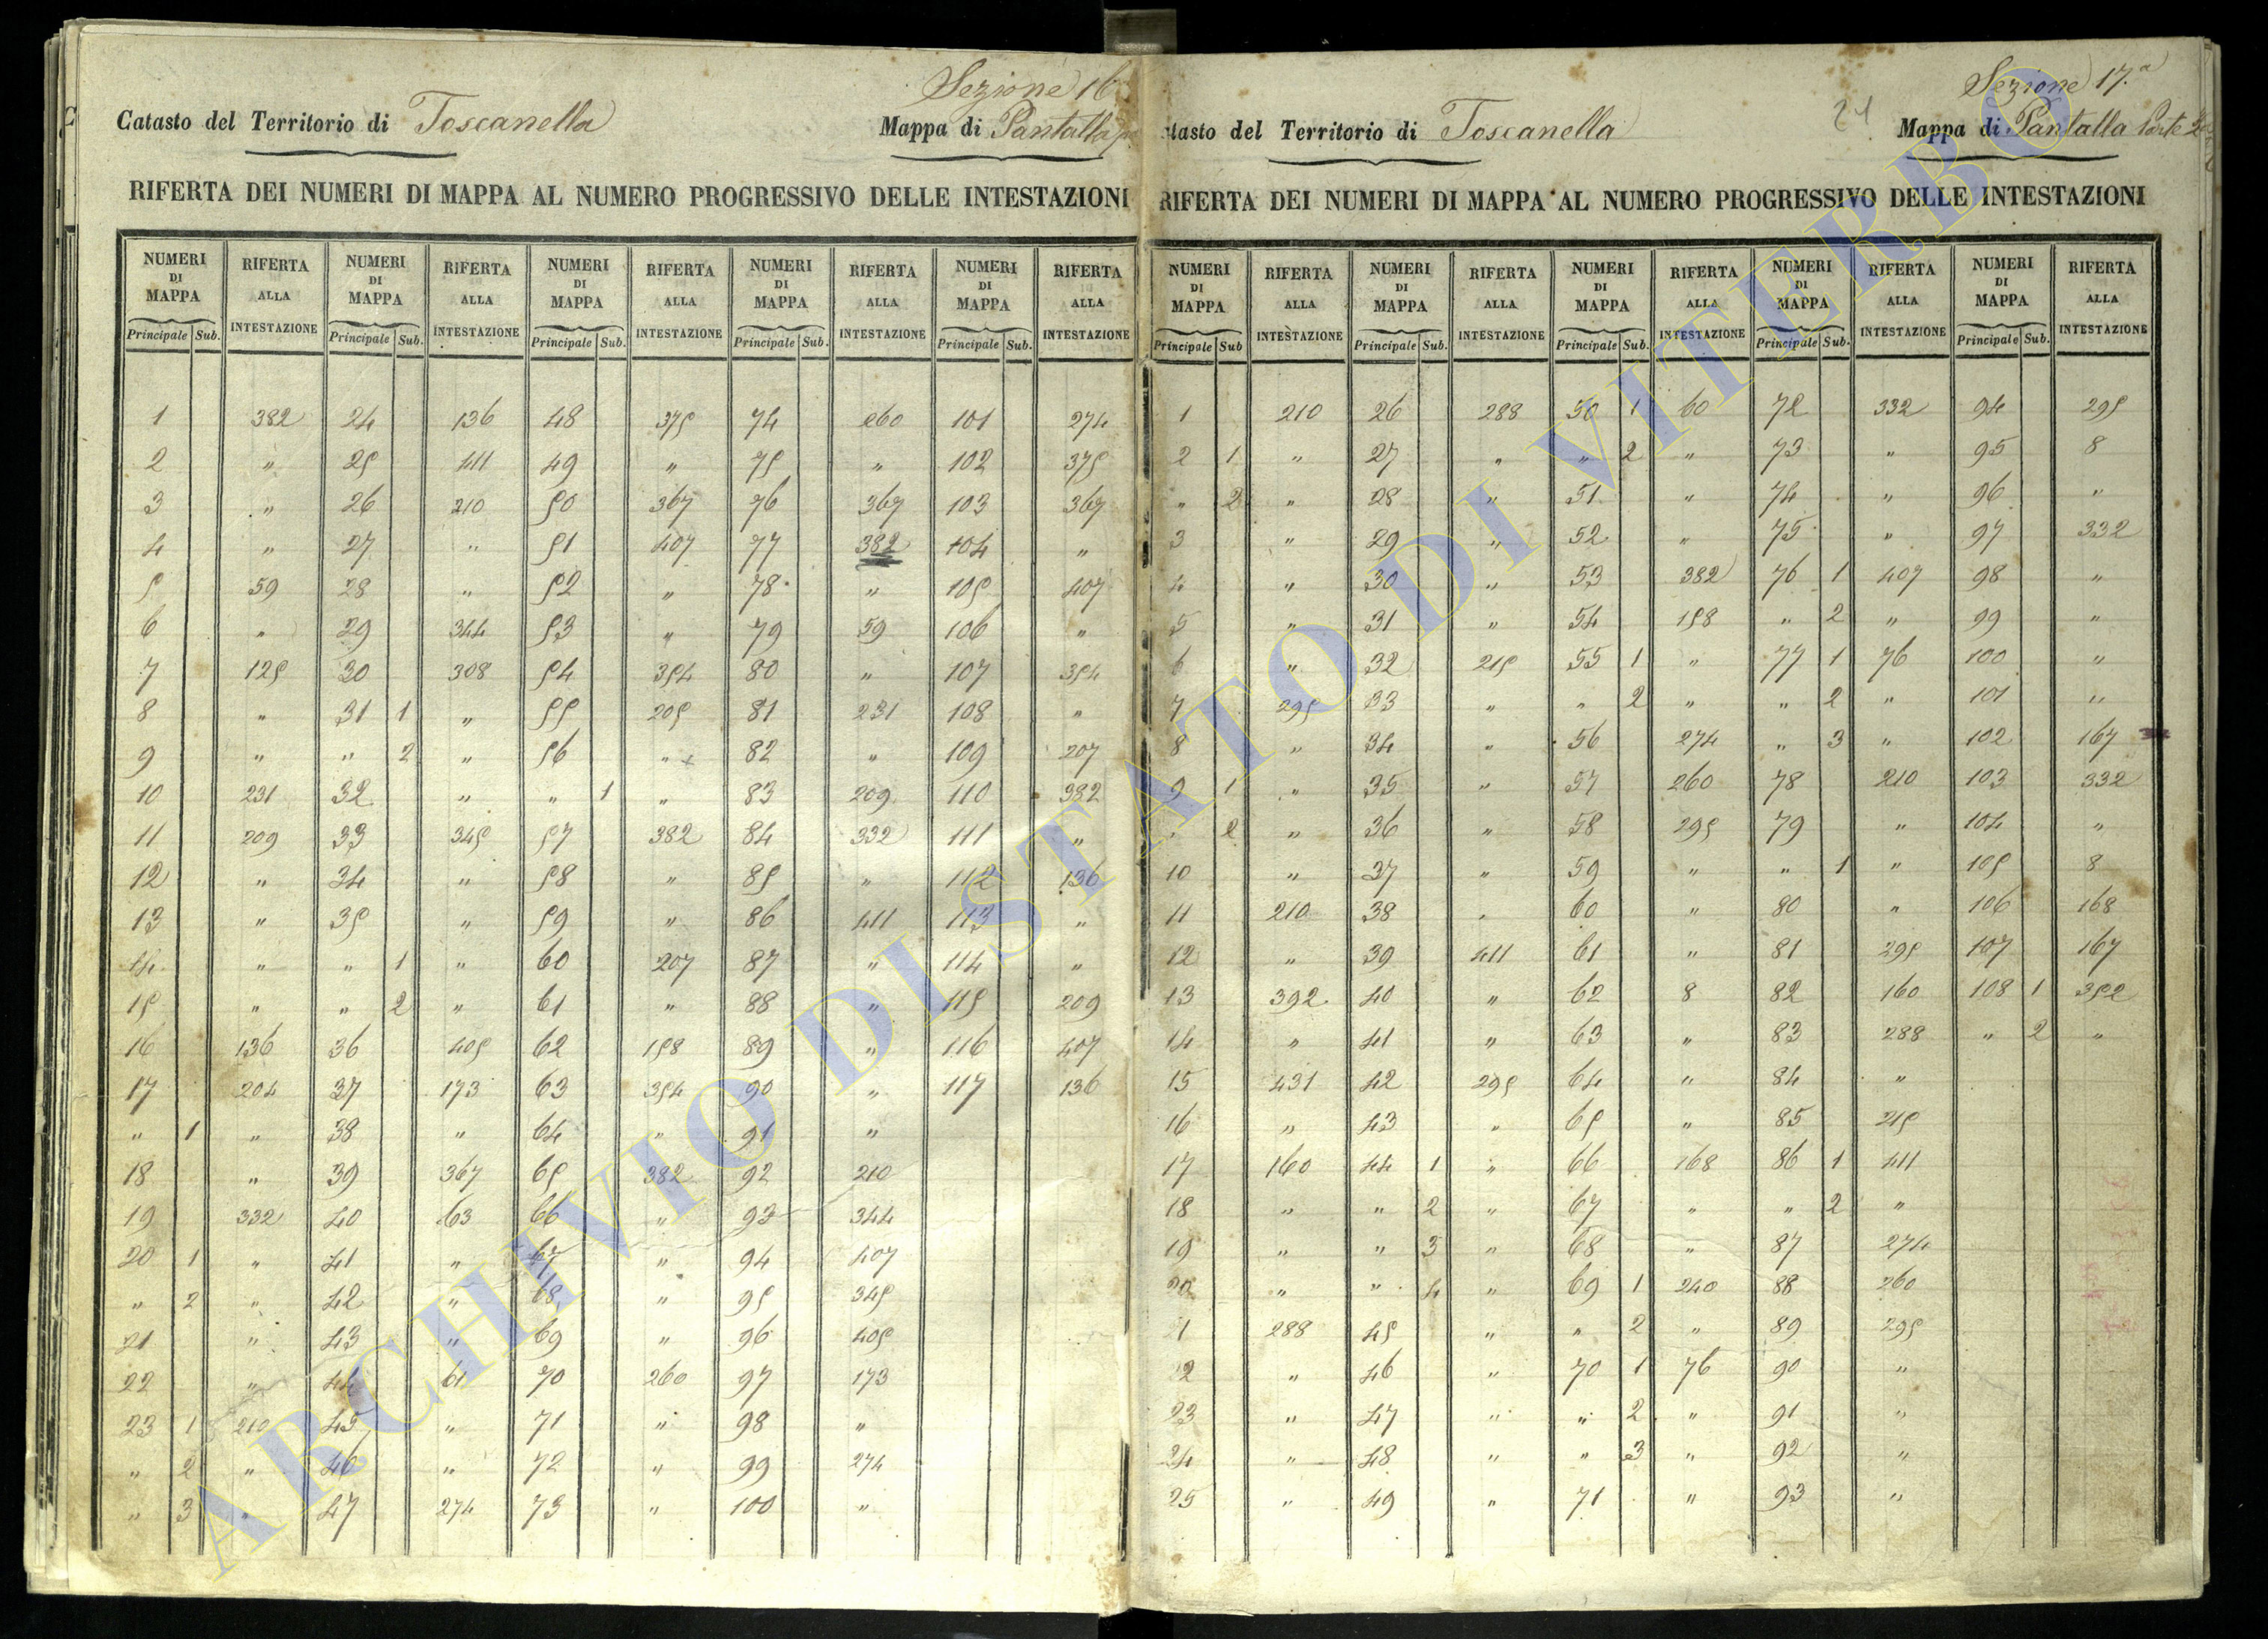 Sezione 16
Catasto del Territorio di Toscanella Mappa di Pantalla
RIFERTA DEI NUMERI DI MAPPA AL NUMERO PROGRESSIVO DELLE INTESTAZIONI
NUMERI DI MAPPA RIFERTA ALLA INTESTAZIONE NUMERI DI MAPPA RIFERTA ALLA INTESTAZIONE NUMERI DI MAPPA RIFERTA ALLA INTESTAZIONE NUMERI DI MAPPA RIFERTA ALLA INTESTAZIONE NUMERI DI MAPPA RIFERTA ALLA INTESTAZIONE
Principale Sub. Principale Sub. Principale Sub. Principale Sub. Principale Sub.
1 382 24 136 48 375 74 260 101 274
2 " 25 411 49 " 75 " 102 375
3 " 26 210 50 367 76 367 103 367
4 " 27 " 51 407 77 382 104 "
5 59 28 " 52 " 78 " 105 407
6 " 29 344 53 " 79 59 106 "
7 125 30 308 54 354 80 " 107 354
8 " 31 1 " 55 205 81 231 108 "
9 " " 2 " 56 " 82 " 109 207
10 231 32 " " 1 " 83 209 110 332
11 209 33 345 57 382 84 332 111 "
12 " 34 " 58 " 85 " 112 136
13 " 35 " 59 " 86 411 113 "
14 " " 1 " 60 207 87 " 114 "
15 " " 2 " 61 " 88 " 115 209
16 136 36 405 62 158 89 " 116 407
17 204 37 173 63 354 90 " 117 136
" 1 " 38 " 64 " 91 "
18 " 39 367 65 382 92 210
19 332 40 63 66 " 93 344
20 1 " 41 " 67 " 94 407
" 2 " 42 " 68 " 95 345
21 " 43 " 69 " 96 405
22 " 44 61 70 260 97 173
23 1 210 45 " 71 " 98 "
" 2 " 46 " 72 " 99 274
" 3 " 47 274 73 " 100 "
Sezione 17.a
24
Catasto del Territorio di Toscanella Mappa di Pantalla Parte 2
RIFERTA DEI NUMERI DI MAPPA AL NUMERO PROGRESSIVO DELLE INTESTAZIONI
NUMERI DI MAPPA RIFERTA ALLA INTESTAZIONE NUMERI DI MAPPA RIFERTA ALLA INTESTAZIONE NUMERI DI MAPPA RIFERTA ALLA INTESTAZIONE NUMERI DI MAPPA RIFERTA ALLA INTESTAZIONE NUMERI DI MAPPA RIFERTA ALLA INTESTAZIONE
Principale Sub Principale Sub. Principale Sub. Principale Sub. Principale Sub.
1 210 26 288 50 1 60 72 332 94 295
2 1 " 27 " " 2 " 73 " 95 8
" 2 " 28 " 51 " 74 " 96 "
3 " 29 " 52 " 75 " 97 332
4 " 30 " 53 382 76 1 407 98 "
5 " 31 " 54 158 " 2 " 99 "
6 " 32 215 55 1 " 77 1 76 100 "
7 295 33 " " 2 " " 2 " 101 "
8 " 34 " 56 274 " 3 " 102 167
9 1 " 35 " 57 260 78 210 103 332
" 2 " 36 " 58 295 79 " 104 "
10 " 37 " 59 " " 1 " 105 8
11 210 38 " 60 " 80 " 106 168
12 " 39 411 61 " 81 295 107 167
13 392 40 " 62 8 82 160 108 1 352
14 " 41 " 63 " 83 288 " 2 "
15 431 42 295 64 " 84 "
16 " 43 " 65 " 85 215
17 160 44 1 " 66 168 86 1 411
18 " " 2 " 67 " " 2 "
19 " " 3 " 68 " 87 274
20 " " 4 " 69 1 240 88 260
21 288 45 " " 2 " 89 295
22 " 46 " 70 1 76 90 "
23 " 47 " " 2 " 91 "
24 " 48 " " 3 " 92 "
25 " 49 " 71 " 93 "
ARCHIVIO DI STATO DI VITERBO